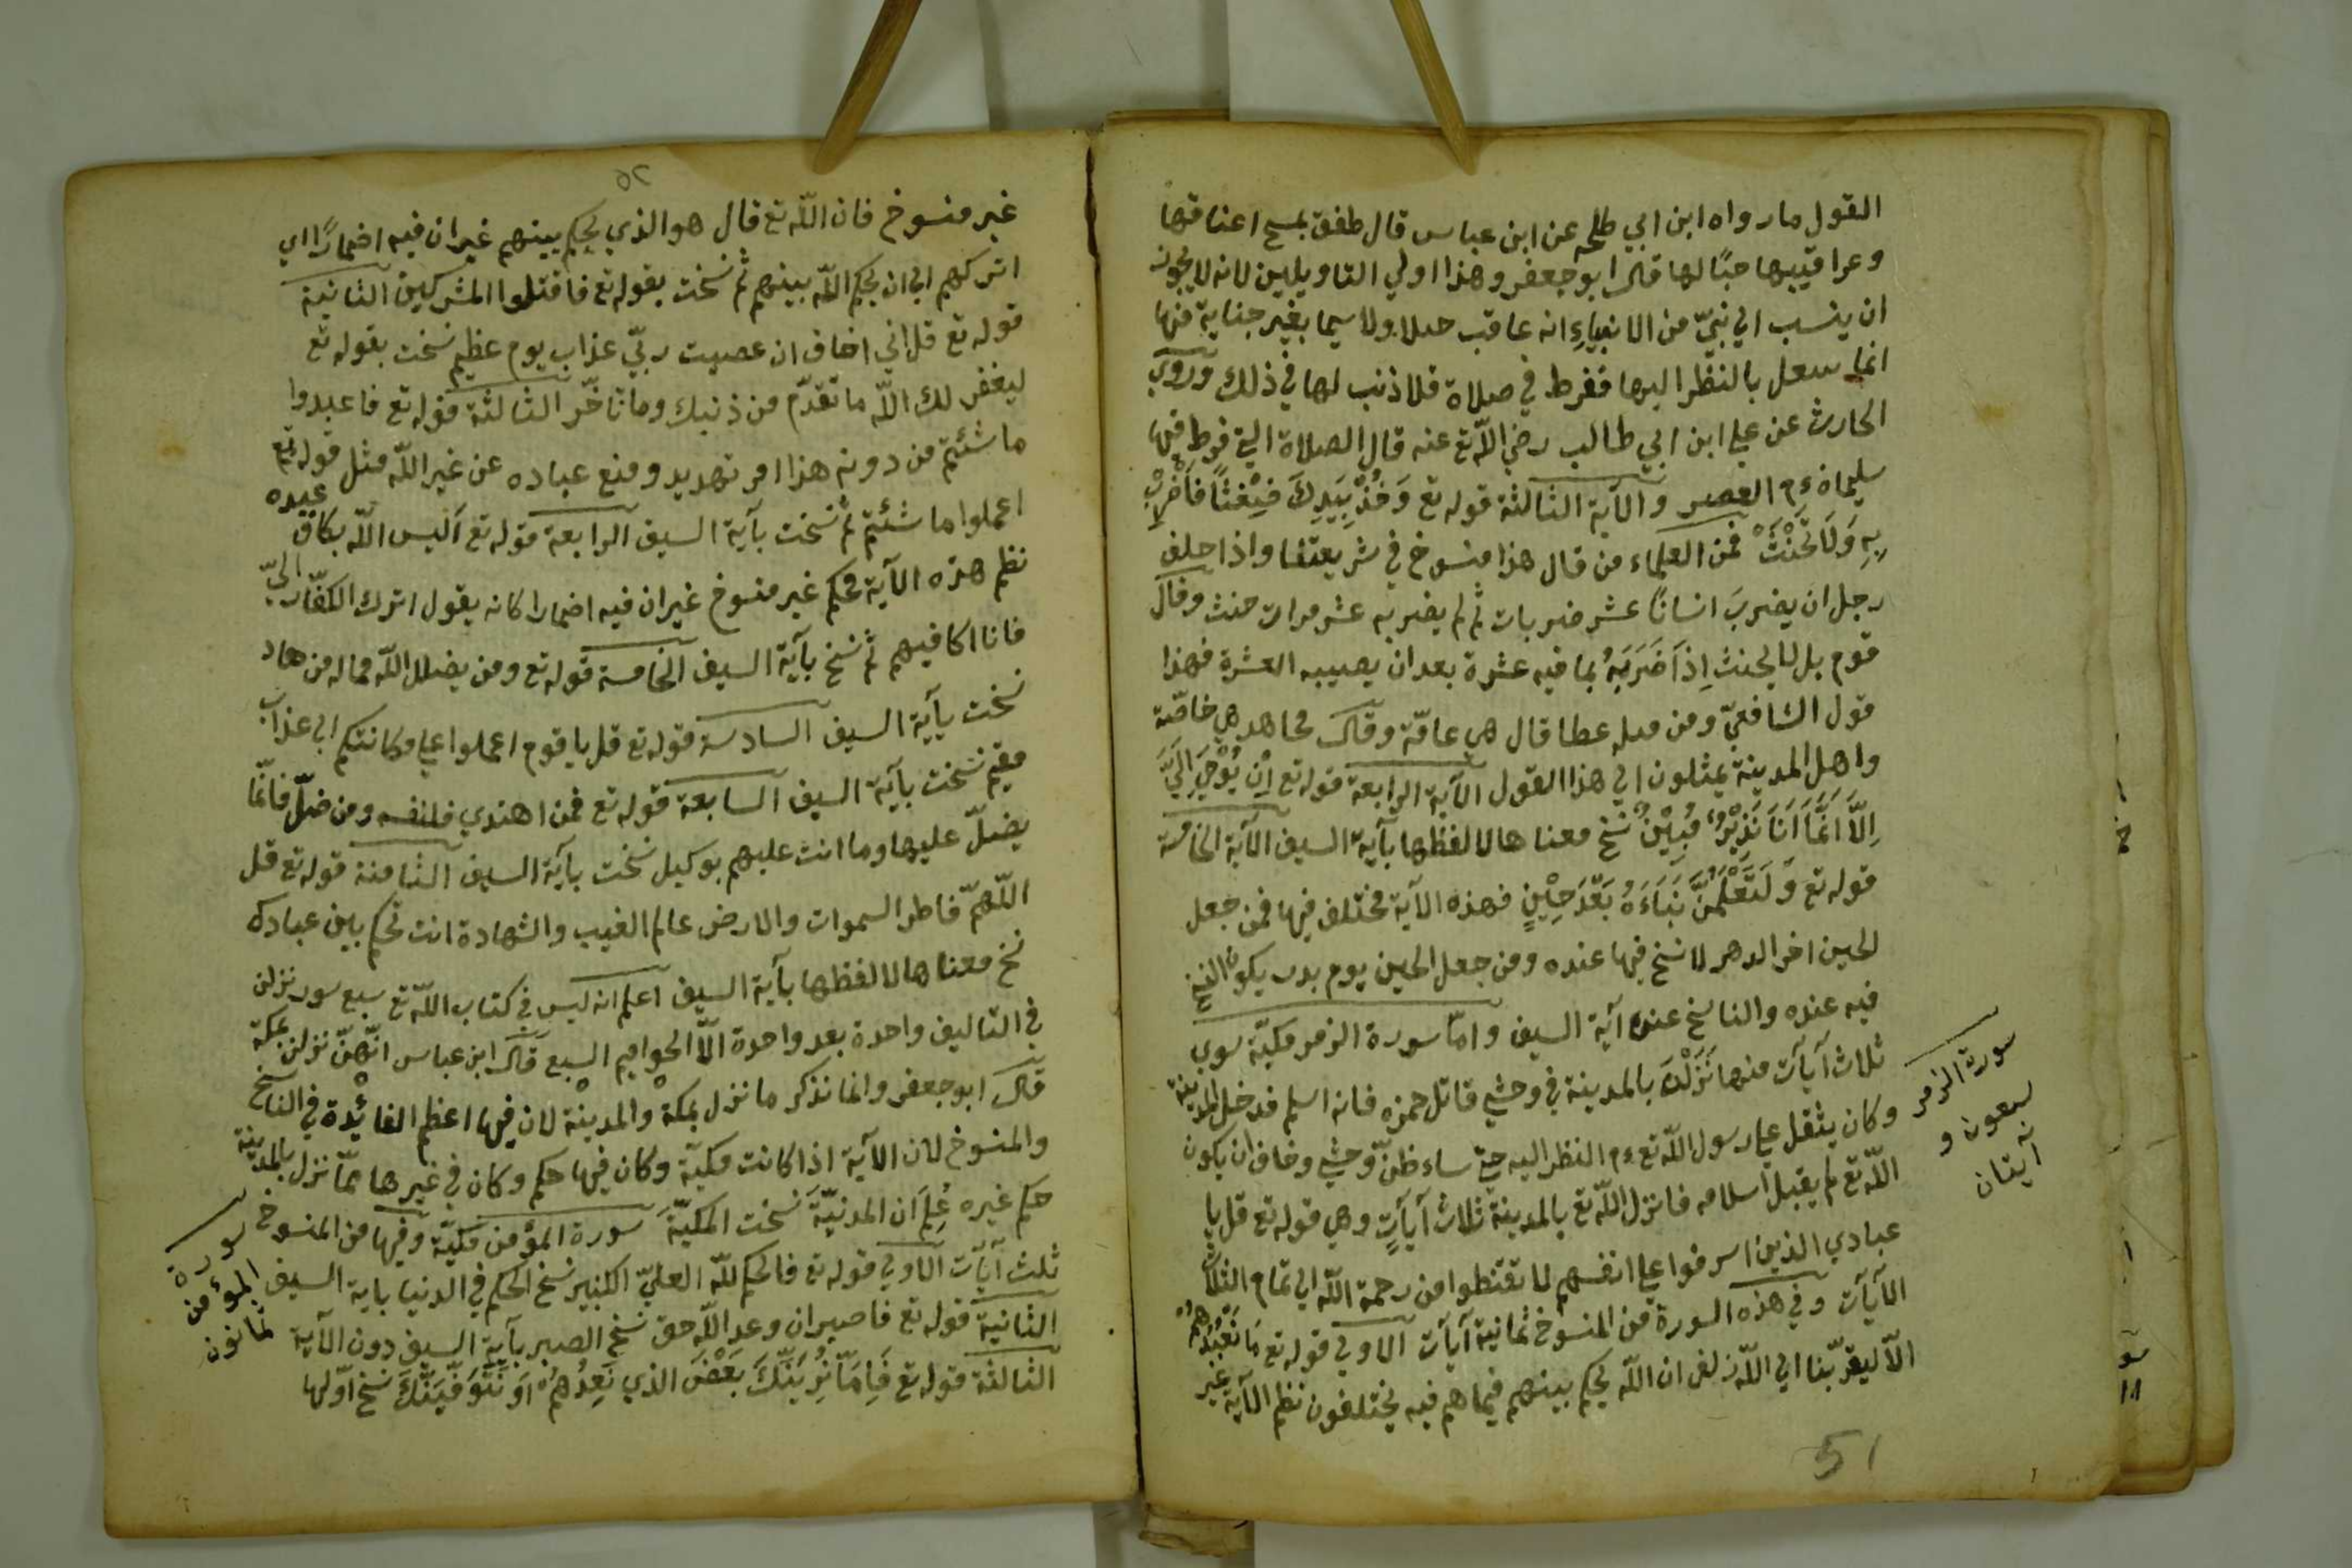 القول ما رواه ابن ابي طلحه عن ابن عباس قال طفق يمسح اعناقها
وعراقيبها حبًا لها قال ابو جعفر وهذا اولي التاويلين لانه لا يجوز
ان ينسب الي نبيّ من الانبياءِ انه عاقب ولا سيما بغير جناية منها
انما بالنظر اليها ففرط في صلاة فلا ذنب لها في ذلك وروي
الحارث عن علي ابن ابي طالب رضي اللّه تع عنه قال الصلاة التي فرط فيها
سليمان ءم العصر والاية الثالثة قوله تع وَخُذْ بِيَدِكَ ضِغْثًا فَاضْرِبْ
بِهِ وَلَا تَحْنَثْ فمن العلماء من قال هذا منسوخ في شريعتنا واذا حلف
رجل ان يضربَ انسانًا عشر ضربات ثم لم يضربه عشر مرات حنث وقال
قوم بل لا يحنث اِذَا ضَرَبَهُ بما فيه عشرة بعد ان يصيبه العشرة فهذا
قول الشافعيّ ومن عطا قال هي عامّة وقال مجاهد هي خاصّة
واهل المدينة يميلون الي هذا القول الآية الرابعة قوله تع اِنْ يُوْحَي اِلَيَّ
اِلَّا اَنَّمَا اَنَا نَذِيْرٌ مُبِيْنٌ نسخ معناها لا لفظها بآية السيف الآية الخامسة
قوله تع وَلَتَعْلَمُنَّ نَبَاءَهُ بَعْدَ حِيْنٍ فهذه الآية مختلف فيها فمن جعل
الحين اخر الدهر لا نسخ فيها عنده ومن جعل الحين يوم بدر يكون النسخ
فيه عنده والناسخ عنده آية السيف وامّا سورة الزمر مكيّة سوي
ثلاث آيآت منها نَزَلْنَ بالمدينة في وحشي قاتل حمزه فانه اسلم فدخل المدينة
وكان يثقل علي رسول اللّه تع ءم النظر اليه حتي ساء ظنّ وحشي وخاف ان يكون
اللّه تع لم يقبل اسلامه فانزل اللّه تع بالمدينة ثلاث آيآتٍ وهي قوله تع قل يا
عبادي الذين اسرفوا علي انفسهم لا تقنطوا من رحمة اللّه الي تمام الثلاث
الآيآت وفي هذه السورة من المنسوخ ثمانية آيآت الاولي قوله تع مَا نَعْبُدُهُمْ
الّا ليقرّبنا الي اللّه زلفي ان اللّه يحكم بينهم فيما هم فيه يختلفون نظم الآية غير
سورة الزمر
سبعون و
آيتان
51
٥٢
غير منسوخ فان اللّه تع قال هو الذي يحكم بينهم غير ان فيه اضمارًا اي
اتركهم الي ان يحكم اللّه بينهم ثم نسخت بقوله تع فاقتلوا المشركين الثانية
قوله تع قل اني اخاف ان عصيت ربّي عذاب يوم عظيم نسخت بقوله تع
ليغفر لك اللّه ما تقدّم من ذنبك وما تأخّر الثالثة قوله تع فاعبدوا
ما شئتم من دونه هذا امر تهديد ومنع عباده عن غير اللّه مثل قوله تع
اعملوا ما شئتم ثم نسخت بآية السيف الرابعة قوله تع أليس اللّه بكاف عبده
نظم هذه الآية محكم غير منسوخ غير ان فيه اضمارا كانه يقول اترك الكفّار اليّ
فانا اكافيهم ثم نسخ بآية السيف الخامسة قوله تع ومن يضلل اللّه فماله من هاد
نسخت بآية السيف السادسة قوله تع قل يا قوم اعملوا علي مكانتكم الي عذاب
مقيم نسخت بآية السيف السابعة قوله تع فمن اهتدي فلنفسه ومن ضلّ فانّما
يضلّ عليها وما انت عليهم بوكيل نسخت بآية السيف الثامنة قوله تع قل
اللّهمّ فاطر السموات والارض عالم الغيب والشهادة انت تحكم بين عبادك
نسخ معناها لا لفظها بآية السيف اعلم انه ليس في كتاب اللّه تع سبع سور نزلن
في التاليف واحدة بعد واحدة الّا الحواميم السبع قال ابن عباس انّهنّ نزلن بمكة
قال ابو جعفر وانما نذكر ما نزل بمكة والمدينة لان فيها اعظم الفائدة في الناسخ
والمنسوخ لان الآية اذا كانت مكيّة وكان فيها حكم وكان في غيرها ممّا نزل بالمدينة
حكم غيره عُلِمَ ان المدنيّة نسخت المكيّة سورة المؤمن مكيّة وفيها من المنسوخ
ثلث آيآت الاولي قوله تع فالحكم للّه العليّ الكبير نسخ الحكم في الدنيا باية السيف
الثانية قوله تع فاصبر ان وعد اللّه حق نسخ الصبر بآية السيف دون الآية
الثالثة قوله تع فَاِمَّا نُرِيَنَّكَ بَعْضَ الذي نَعِدُهُمْ اَوْ نَتَوَفَّيَنَّكَ نسخ اوّلها
سورة
المؤمن
ثمانون